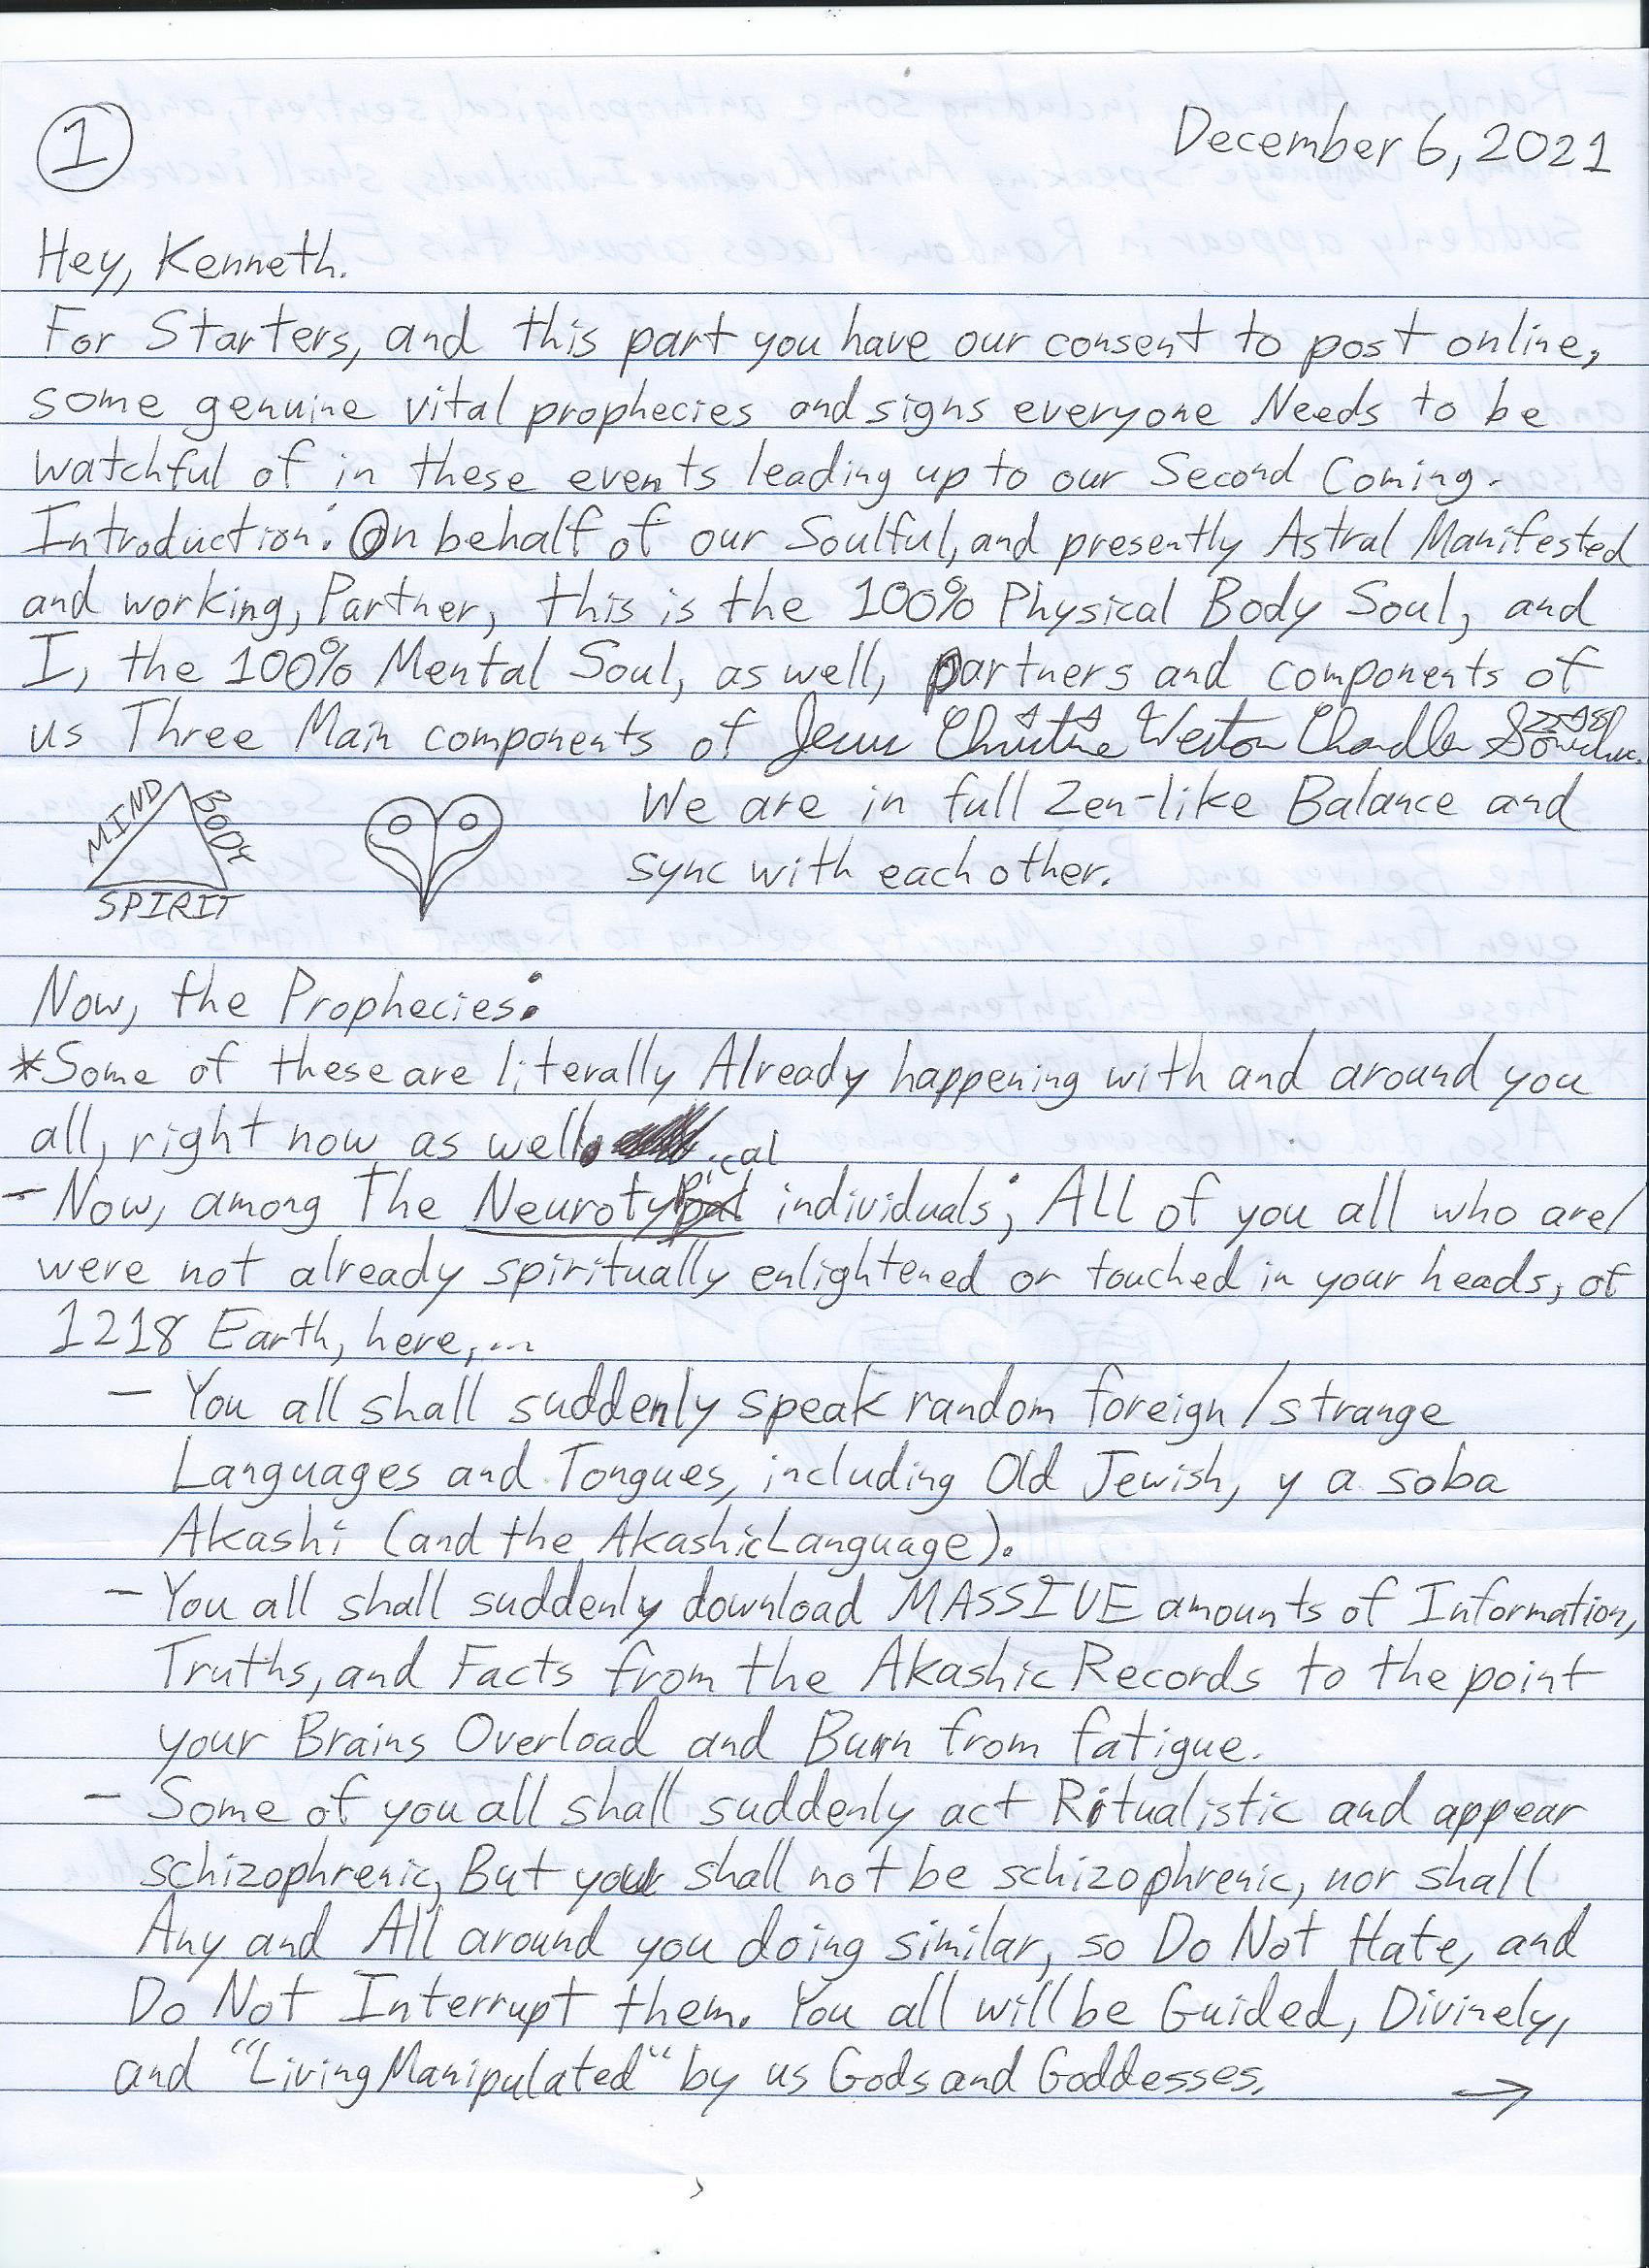 1
December 6, 2021
Hey, Kenneth.
For Starters, and this part you have our consent to post online,
some genuine vital prophecies and signs everyone Needs to be
watchful of in these events leading up to our Second Coming.
Introduction: On behalf of our Soulful, and presently Astral Manifested
and working, Partner, this is the 100% Physical Body Soul, and
I, the 100% Mental Soul, as well, partners and components of
us Three Main components of Jesus Christine Weston Chandler
MIND BODY We are in full Zen-like Balance and
SPIRIT sync with each other.
Now, the Prophecies:
*Some of these are literally Already happening with and around you
all, right now as well.
- Now, among The Neurotypical individuals; All of you all who are/
were not already spiritually enlightened or touched in your heads, of
1218 Earth, here,...
- You all shall suddenly speak random foreign/strange
Languages and Tongues, including Old Jewish, y a soba
Akashi (and the Akashic Language).
- You all shall suddenly download MASSIVE amounts of Information,
Truths, and Facts from the Akashic Records to the point
your Brains Overload and Burn from fatigue.
- Some of you all shall suddenly act Ritualistic and appear
schizophrenic, But you shall not be schizophrenic, nor shall
Any and All around you doing similar, so Do Not Hate, and
Do Not Interrupt them. You all will be Guided, Divinely,
and "Living Manipulated" by us Gods and Goddesses. →